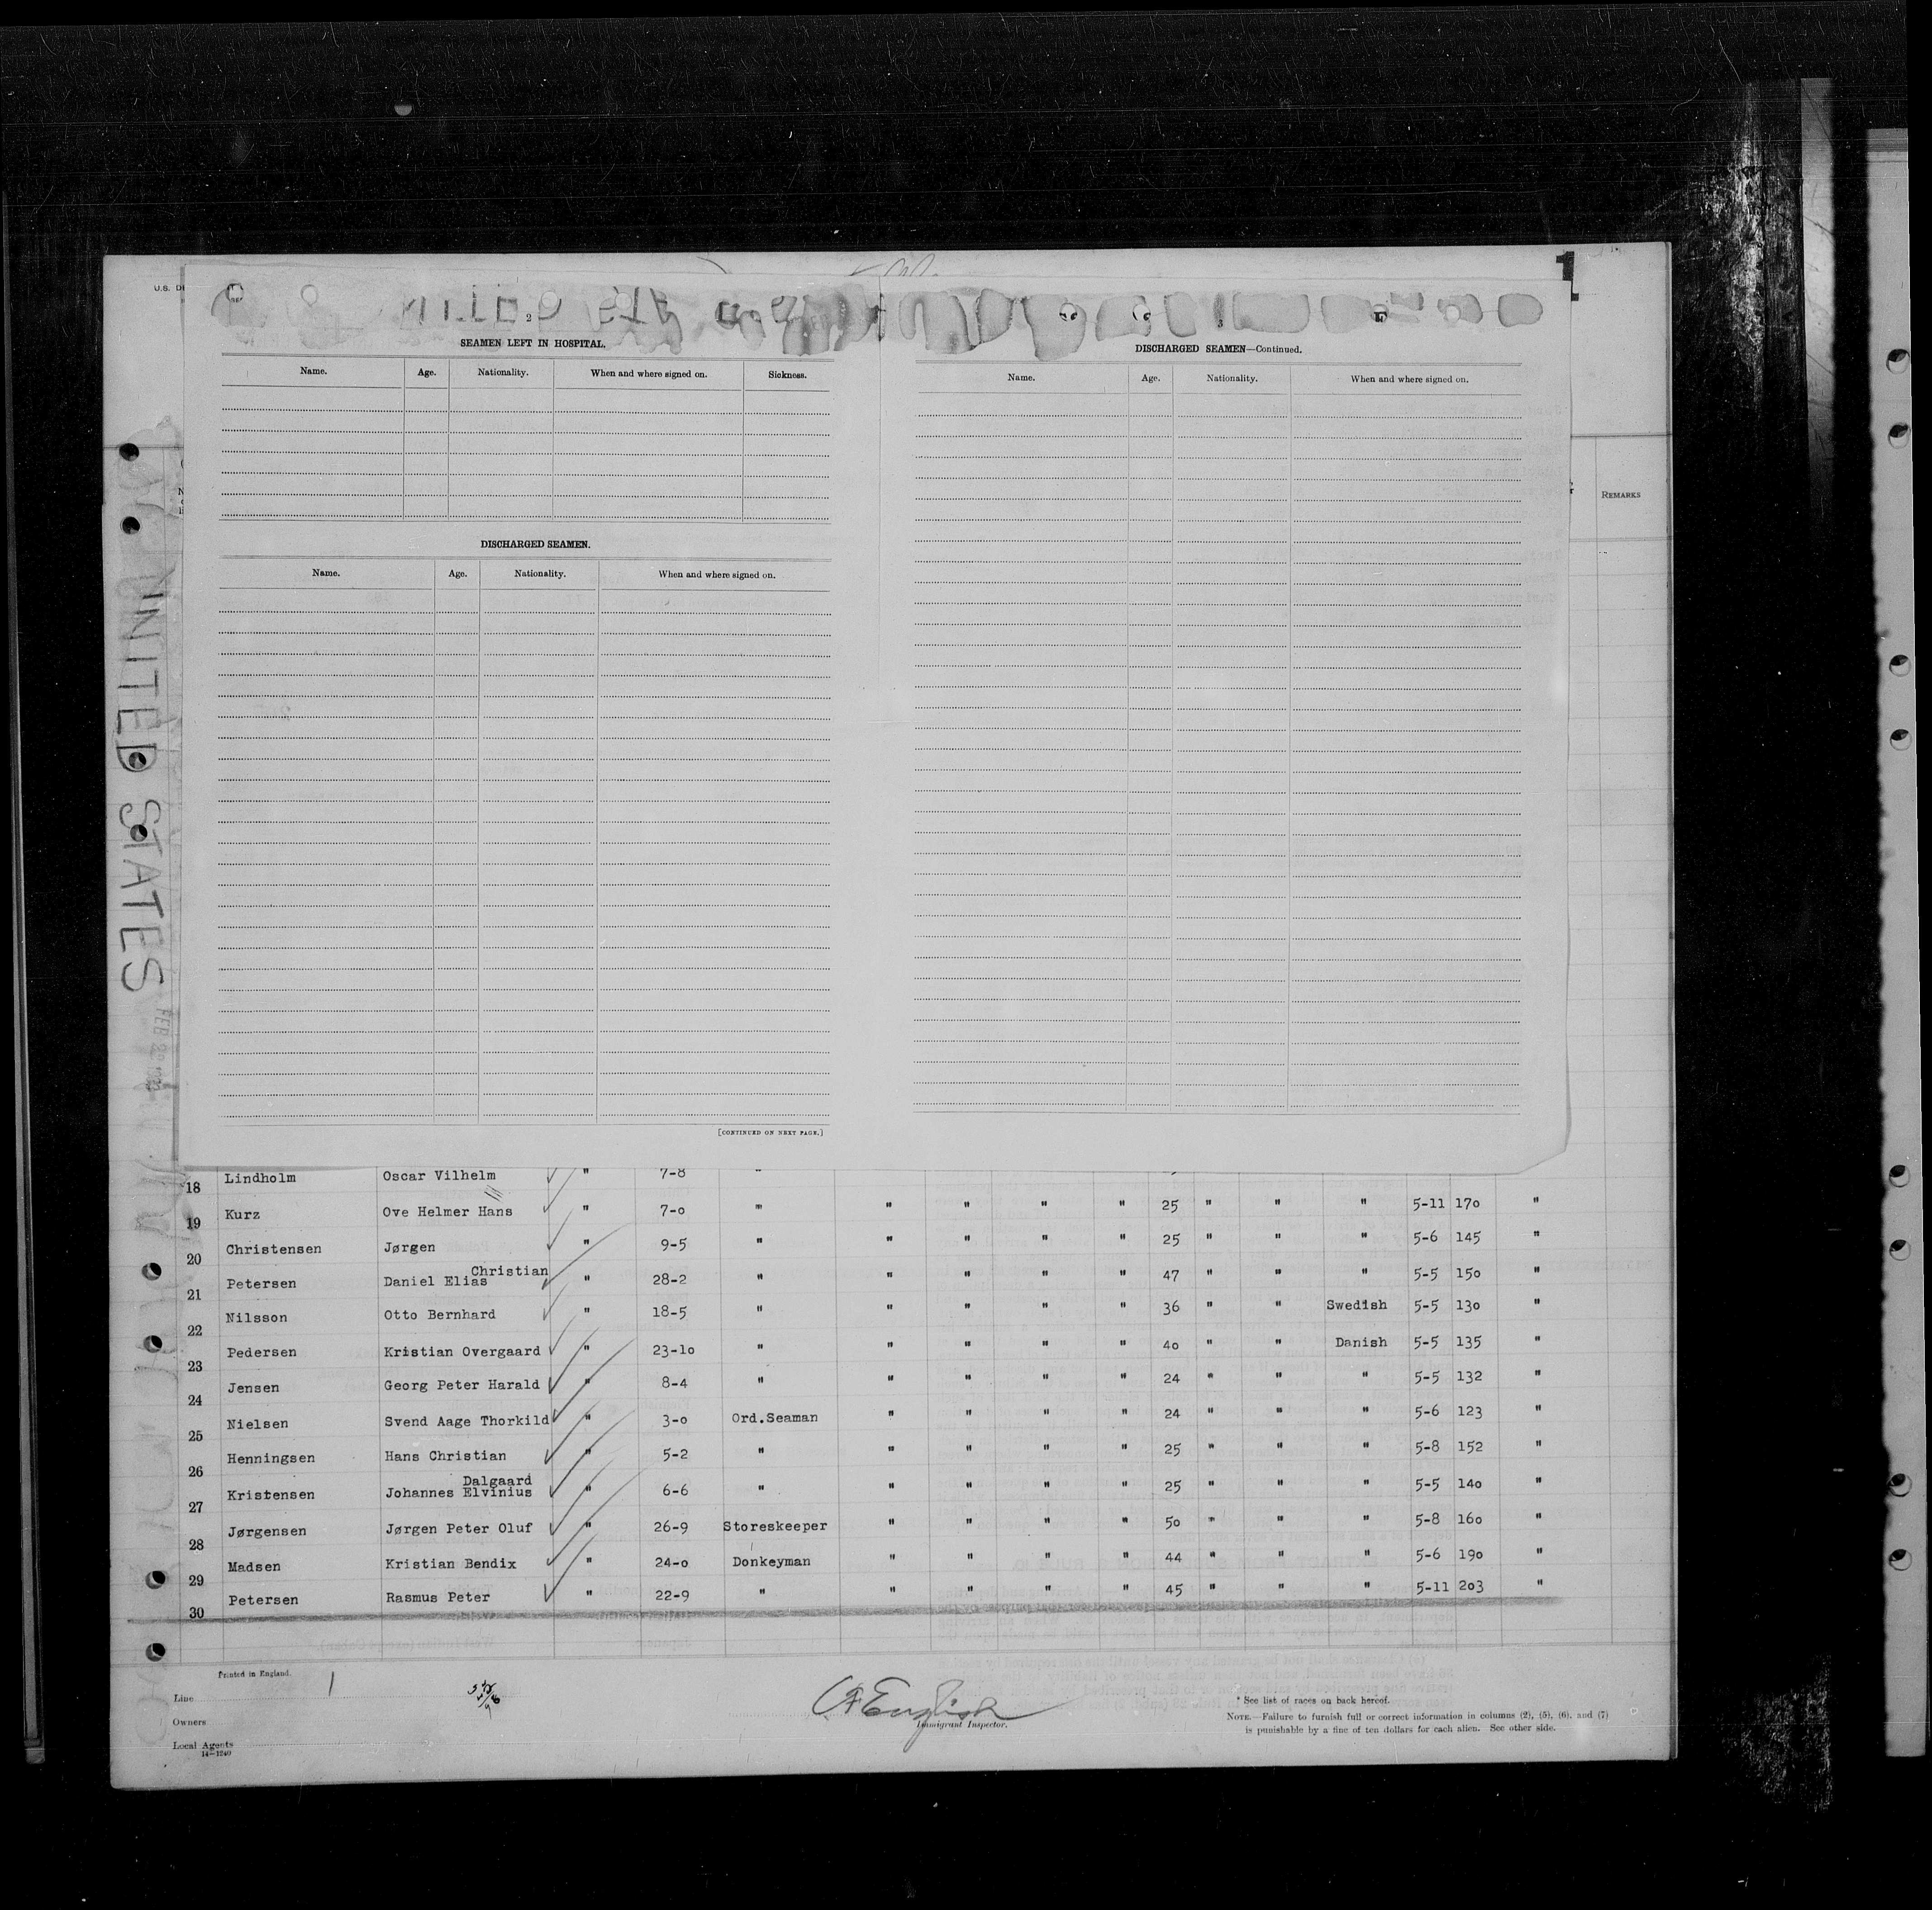 1
U.S. DE
2
SEAMEN LEFT IN HOSPITAL.
Name. Age. Nationality. When and where signed on. Sickness.
DISCHARGED SEAMEN.
Name. Age. Nationality. When and where signed on.
[CONTINUED ON NEXT PAGE.]
3
DISCHARGED SEAMEN—Continued.
Name. Age. Nationality. When and where signed on.
REMARKS
UNITED STATES
18 Lindholm Oscar Vilhelm " 7-8 "
19 Kurz Ove Helmer Hans " 7-0 " " " " " 25 " " " 5-11 170 "
20 Christensen Jørgen " 9-5 " " " " " 25 " " " 5-6 145 "
Christian
21 Petersen Daniel Elias " 28-2 " " " " " 47 " " " 5-5 150 "
22 Nilsson Otto Bernhard " 18-5 " " " " " 36 " " Swedish 5-5 130 "
23 Pedersen Kristian Overgaard " 23-10 " " " " " 40 " " Danish 5-5 135 "
24 Jensen Georg Peter Harald " 8-4 " " " " " 24 " " " 5-5 132 "
25 Nielsen Svend Aage Thorkild " 3-0 Ord.Seaman " " " " 24 " " " 5-6 123 "
26 Henningsen Hans Christian " 5-2 " " " " " 25 " " " 5-8 152 "
Dalgaard
27 Kristensen Johannes Elvinius " 6-6 " " " " " 25 " " " 5-5 140 "
28 Jørgensen Jørgen Peter Oluf " 26-9 Storeskeeper " " " " 50 " " " 5-8 160 "
29 Madsen Kristian Bendix " 24-0 Donkeyman " " " " 44 " " " 5-6 190 "
30 Petersen Rasmus Peter " 22-9 " " " " " 45 " " " 5-11 203 "
Printed in England.
Line
Owners
Local Agents
14-1240
English
Immigrant Inspector.
* See list of races on back hereof.
NOTE.—Failure to furnish full or correct information in columns (2), (5), (6), and (7)
is punishable by a fine of ten dollars for each alien. See other side.